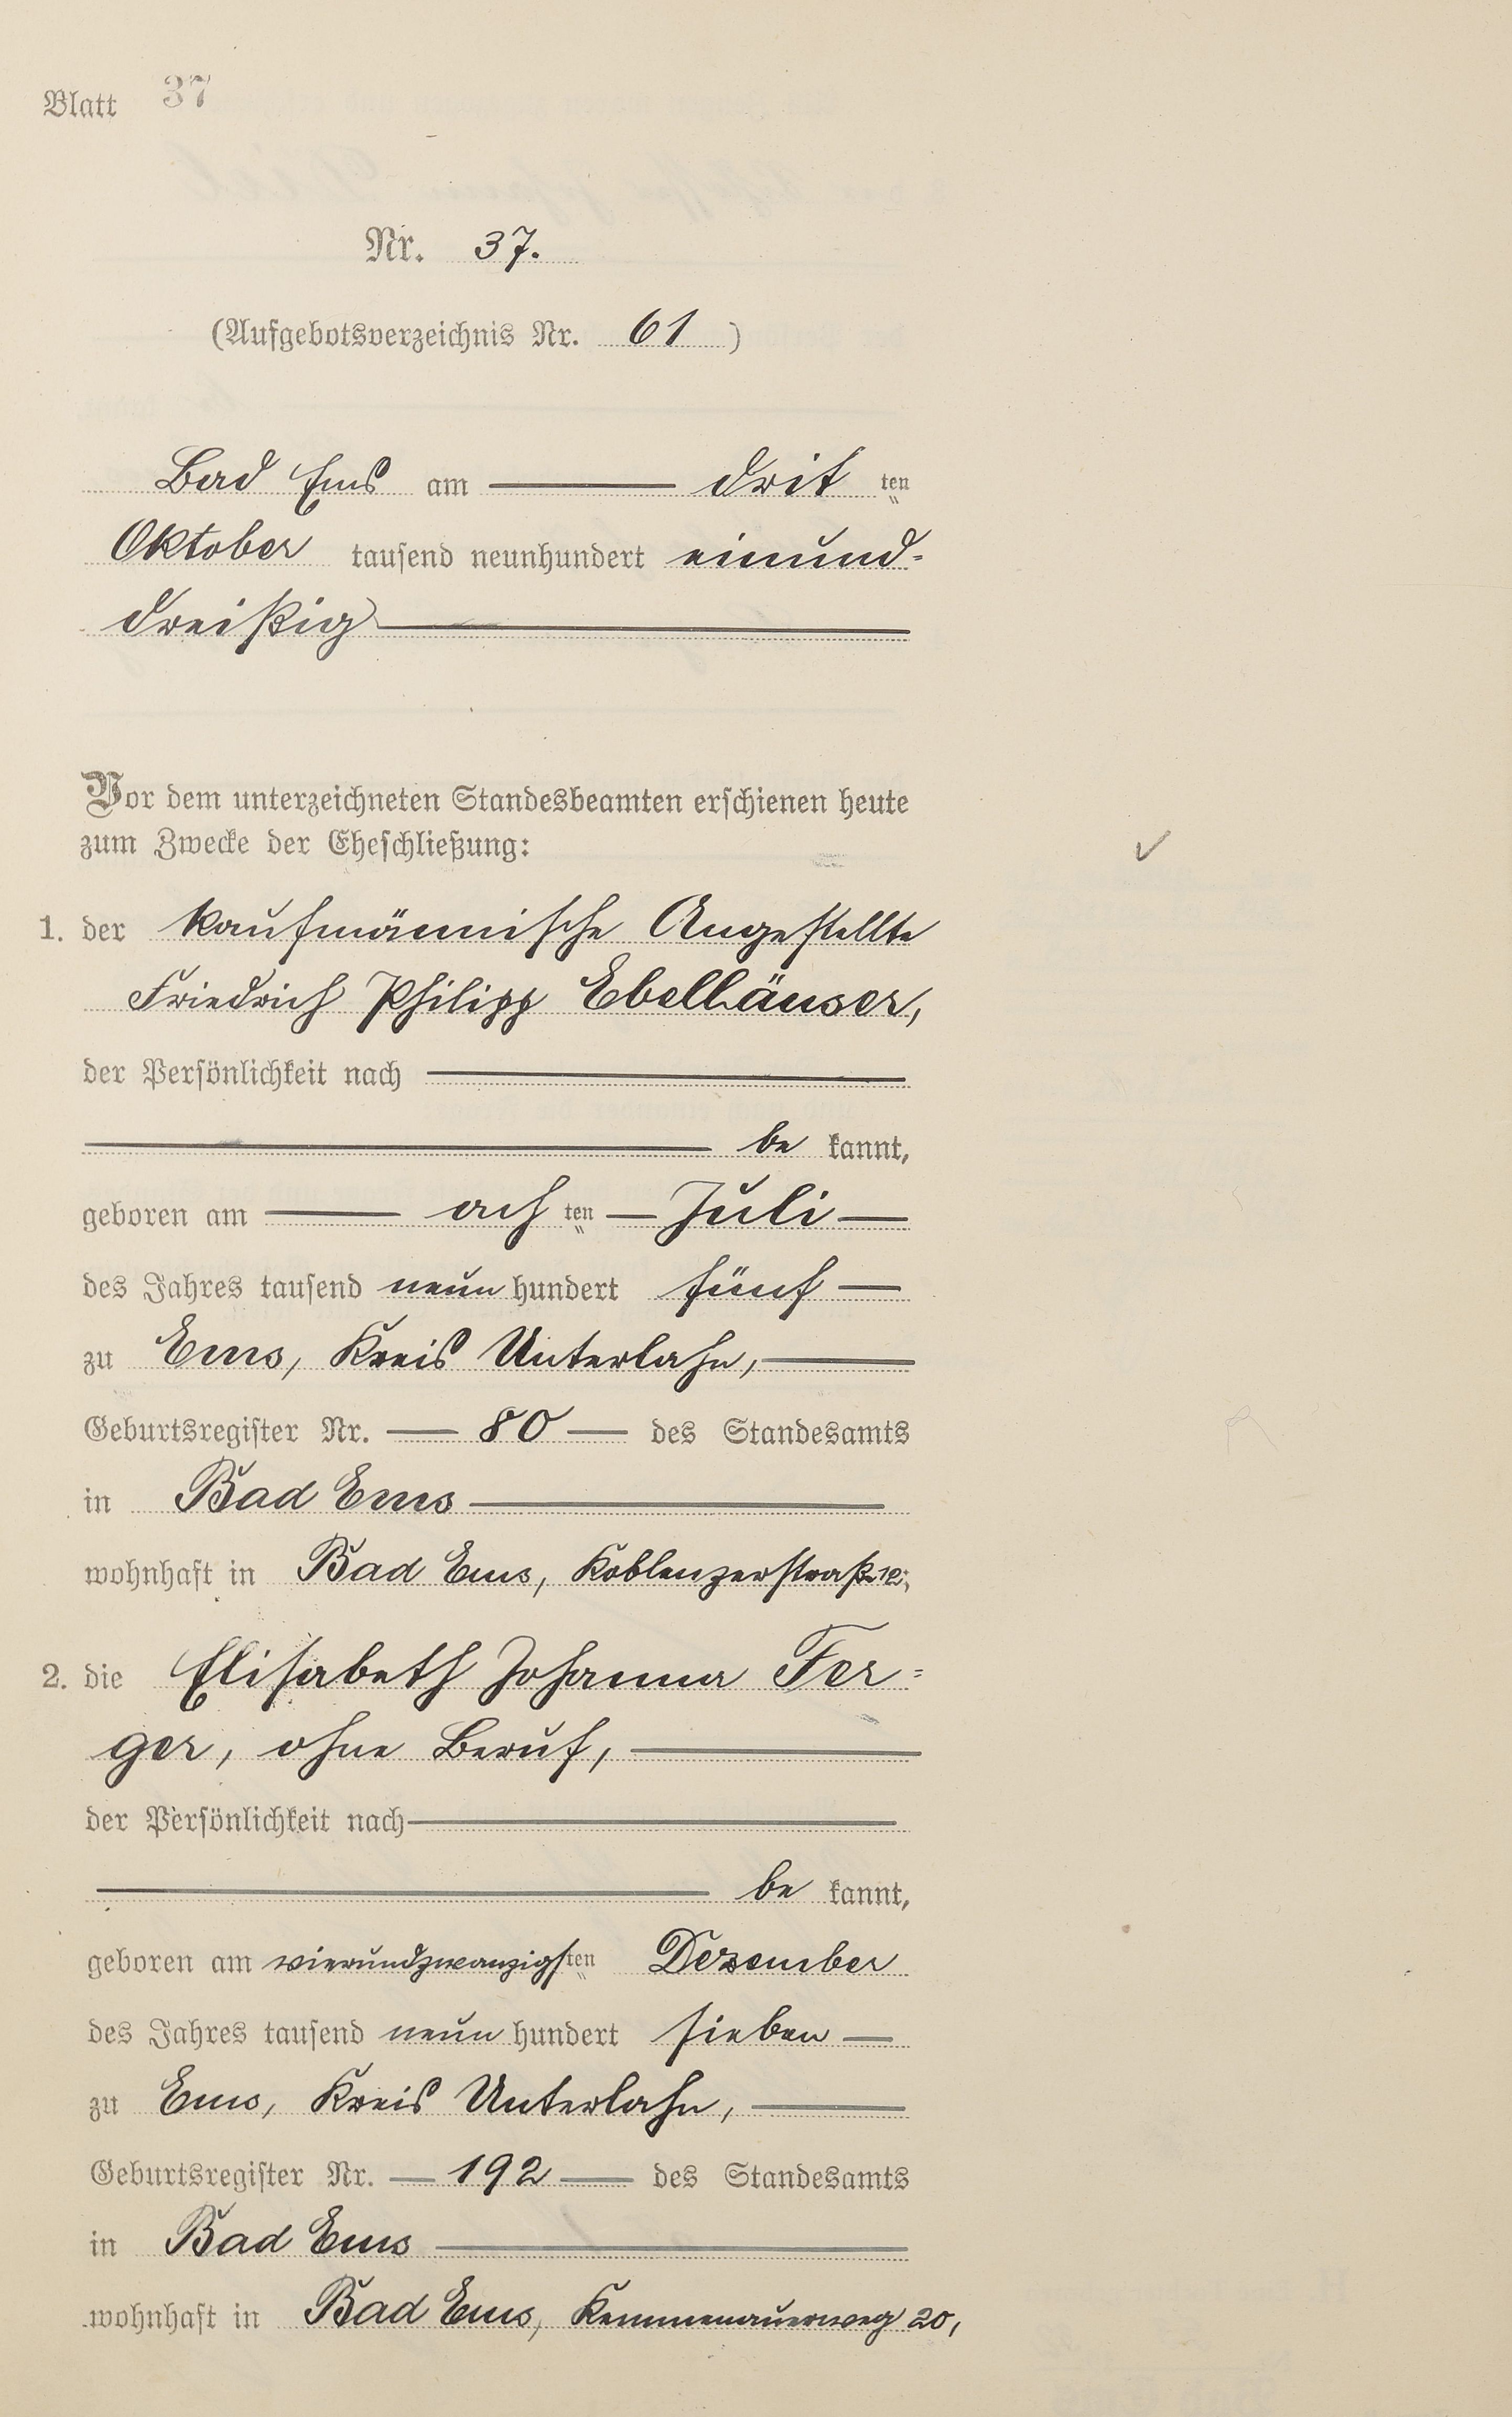 Blatt 37
Nr. 37.
(Aufgebotsverzeichnis Nr. 61)
Bad Ems am drit ten
Oktober tausend neunhundert einund-
dreißig
Vor dem unterzeichneten Standesbeamten erschienen heute
zum Zwecke der Eheschließung:
1. der kaufmännische Angestellte
Friedrich Philipp Ebelhäuser,
der Persönlichkeit nach
be kannt,
geboren am ach ten Juli
des Jahres tausend neun hundert fünf
zu Ems, Kreis Unterlahn,
Geburtsregister Nr. 80 des Standesamts
in Bad Ems
wohnhaft in Bad Ems, Koblenzerstraße 12,
2. die Elisabeth Johanna Fer=
ger, ohne Beruf,
der Persönlichkeit nach
be kannt,
geboren am vierundzwanzigsten Dezember
des Jahres tausend neun hundert sieben
zu Ems, Kreis Unterlahn,
Geburtsregister Nr. 192 des Standesamts
in Bad Ems
wohnhaft in Bad Ems, Kemmenauerweg 20,